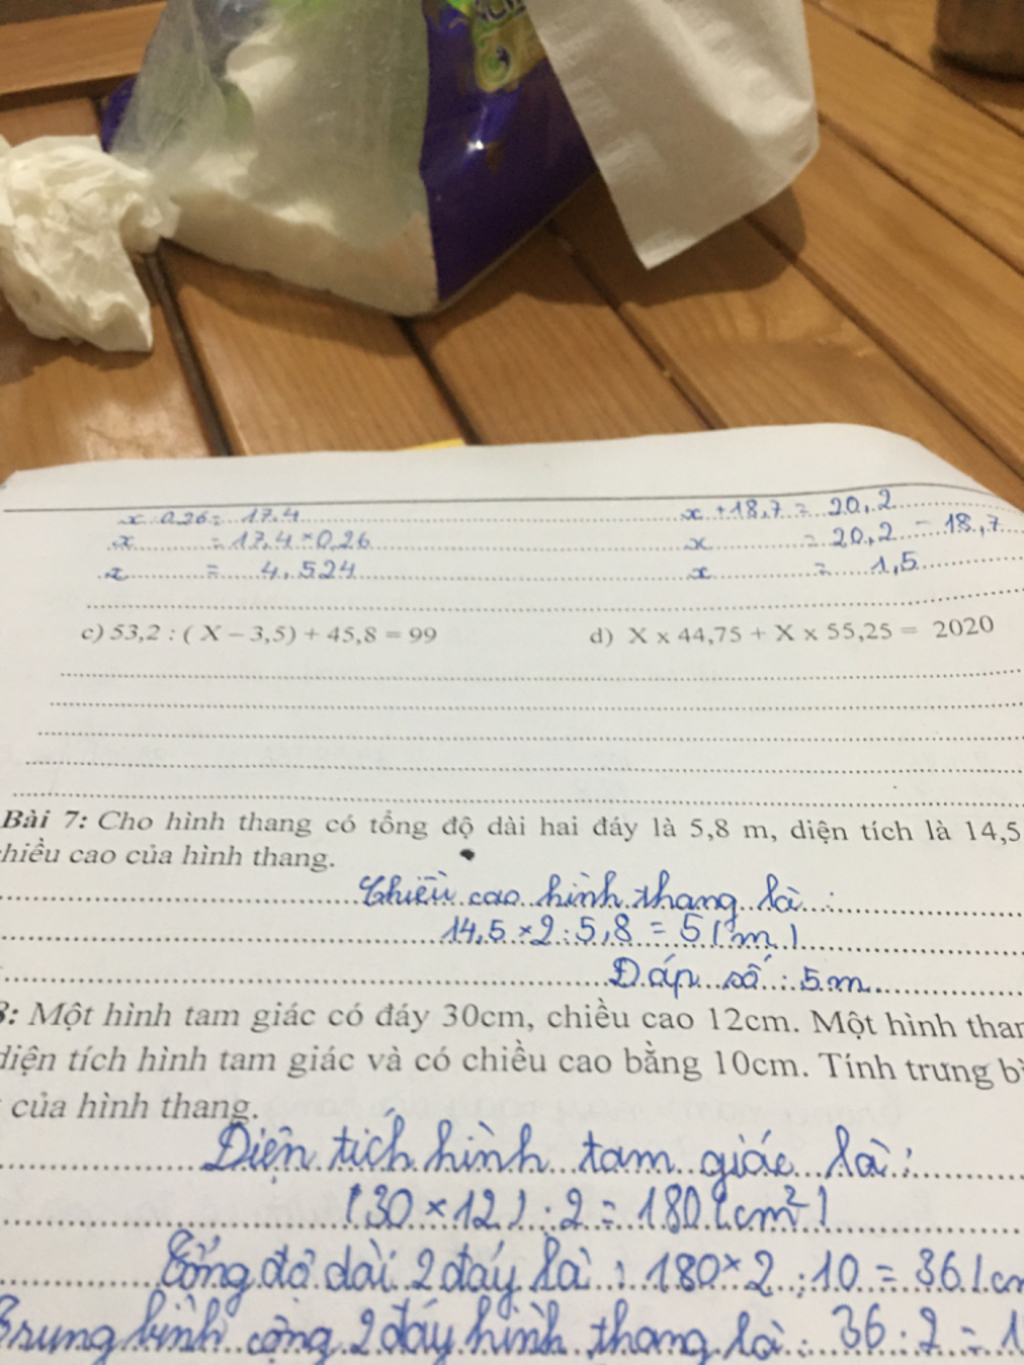 x : 0,26 = 17,4
x = 17,4 × 0,26
x = 4,524
x + 18,7 = 20,2
x = 20,2 - 18,7
x = 1,5
c) 53,2 : ( X – 3,5) + 45,8 = 99
d) X x 44,75 + X x 55,25 = 2020
Bài 7: Cho hình thang có tổng độ dài hai đáy là 5,8 m, diện tích là 14,5
chiều cao của hình thang.
Chiều cao hình thang là :
14,5 × 2 : 5,8 = 5 (m)
Đáp số : 5m
8: Một hình tam giác có đáy 30cm, chiều cao 12cm. Một hình than
diện tích hình tam giác và có chiều cao bằng 10cm. Tính trung bì
của hình thang.
Diện tích hình tam giác là :
(30 × 12) : 2 = 180 (cm²)
Tổng độ dài 2 đáy là : 180 × 2 : 10 = 36 (cm
Trung bình cộng 2 đáy hình thang là : 36 : 2 = 1